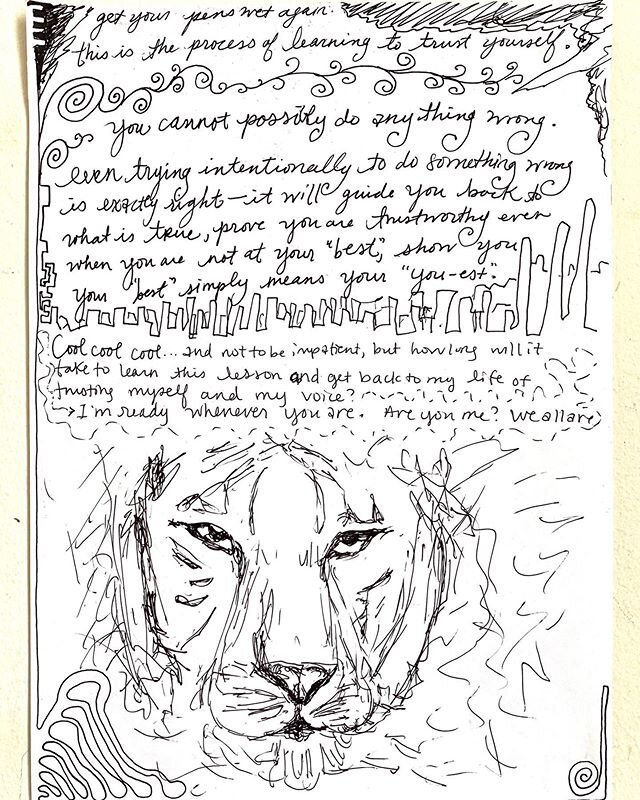 get your pens wet again.
this is the process of learning to trust yourself.
you cannot possibly do anything wrong.
even trying intentionally to do something wrong
is exactly right—it will guide you back to
what is true, prove you are trustworthy even
when you are not at your "best", show you
your "best" simply means your "you-est".
Cool cool cool... and not to be impatient, but how long will it
take to learn this lesson and get back to my life of
trusting myself and my voice?
→ I'm ready whenever you are. Are you me? We all are